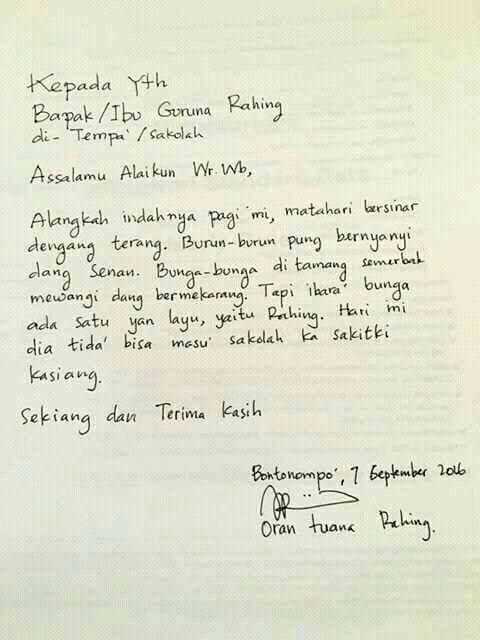 Kepada Yth
Bapak/Ibu Guruna Rahing
di- Tempa'/sakolah
Assalamu Alaikun Wr. Wb,
Alangkah indahnya pagi mi, matahari bersinar
dengang terang. Burun-burun pung bernyanyi
dang Senan. Bunga-bunga di tamang semerbak
mewangi dang bermekarang. Tapi ibara' bunga
ada satu yan layu, yaitu Rahing. Hari mi
dia tida' bisa masu' sakolah ka sakitki
kasiang.
Sekiang dan Terima Kasih
Bontonompo', 7 September 2016
Oran tuana Rahing.